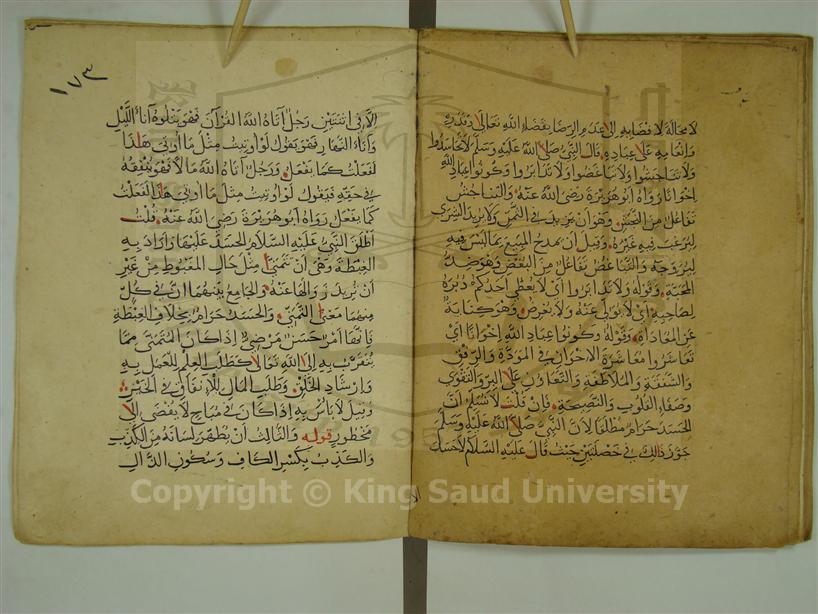 لا محالة لافضائه الى عدم الرضا بقضاء الله تعالى وقدره
وانعامه على عباده قال النبي صلى الله عليه وسلم لا تحاسدوا
ولا تناجشوا ولا تباغضوا ولا تدابروا وكونوا عباد الله
اخوانا رواه ابو هريرة رضى الله عنه والتناجش
تفاعل من النجش وهو ان يزيد في الثمن ولا يريد الشرى
ليرغب فيه غيره وقيل ان يمدح المبيع بما ليس فيه
ليروجه والتباغض تفاعل من البغض وهو ضد
المحبة وقوله ولا تدابروا اى لا يعطى احدكم دبره
لصاحبه اى لا يولى عنه ولا يعرض وهو كناية
عن المعاداة وقوله وكونوا عباد الله اخوانا اى
تعاشروا معاشرة الاخوان في المودة والرفق
والشفقة والملاطفة والتعاون على البر والتقوى
وصفاء القلوب والنصيحة فان قلت لا نسلم ان
الحسد حرام مطلقا لان النبي صلى الله عليه وسلم
جوز ذلك في خصلتين حيث قال عليه السلام لا حسد
١٧٣
الا في اثنتين رجل آتاه الله القرآن فهو يتلوه آناء الليل
وآناء النهار فهو يقول لو اوتيت مثل ما اوتى هذا
لفعلت كما يفعل ورجل آتاه الله مالا فهو ينفقه
في حقه فيقول لو اوتيت مثل ما اوتى هذا لفعلت
كما يفعل رواه ابو هريرة رضى الله عنه قلت
اطلق النبي عليه السلام الحسد عليهما واراد به
الغبطة وهى ان تتمنى مثل حال المغبوط من غير
ان تريد زوالها عنه والجامع بينهما ان في كل
منهما معنى التمنى والحسد حرام بخلاف الغبطة
فانها امر حسن مرضى اذا كان المتمنى مما
يتقرب به الى الله تعالى كطلب العلم للعمل به
وارشاد الخلق وطلب المال للانفاق في الخير
وقيل لا باس به اذا كان في مباح لا يفضى الى
محظور قوله والثالث ان يطهر لسانه من الكذب
والكذب بكسر الكاف وسكون الذال
Copyright © King Saud University
1957